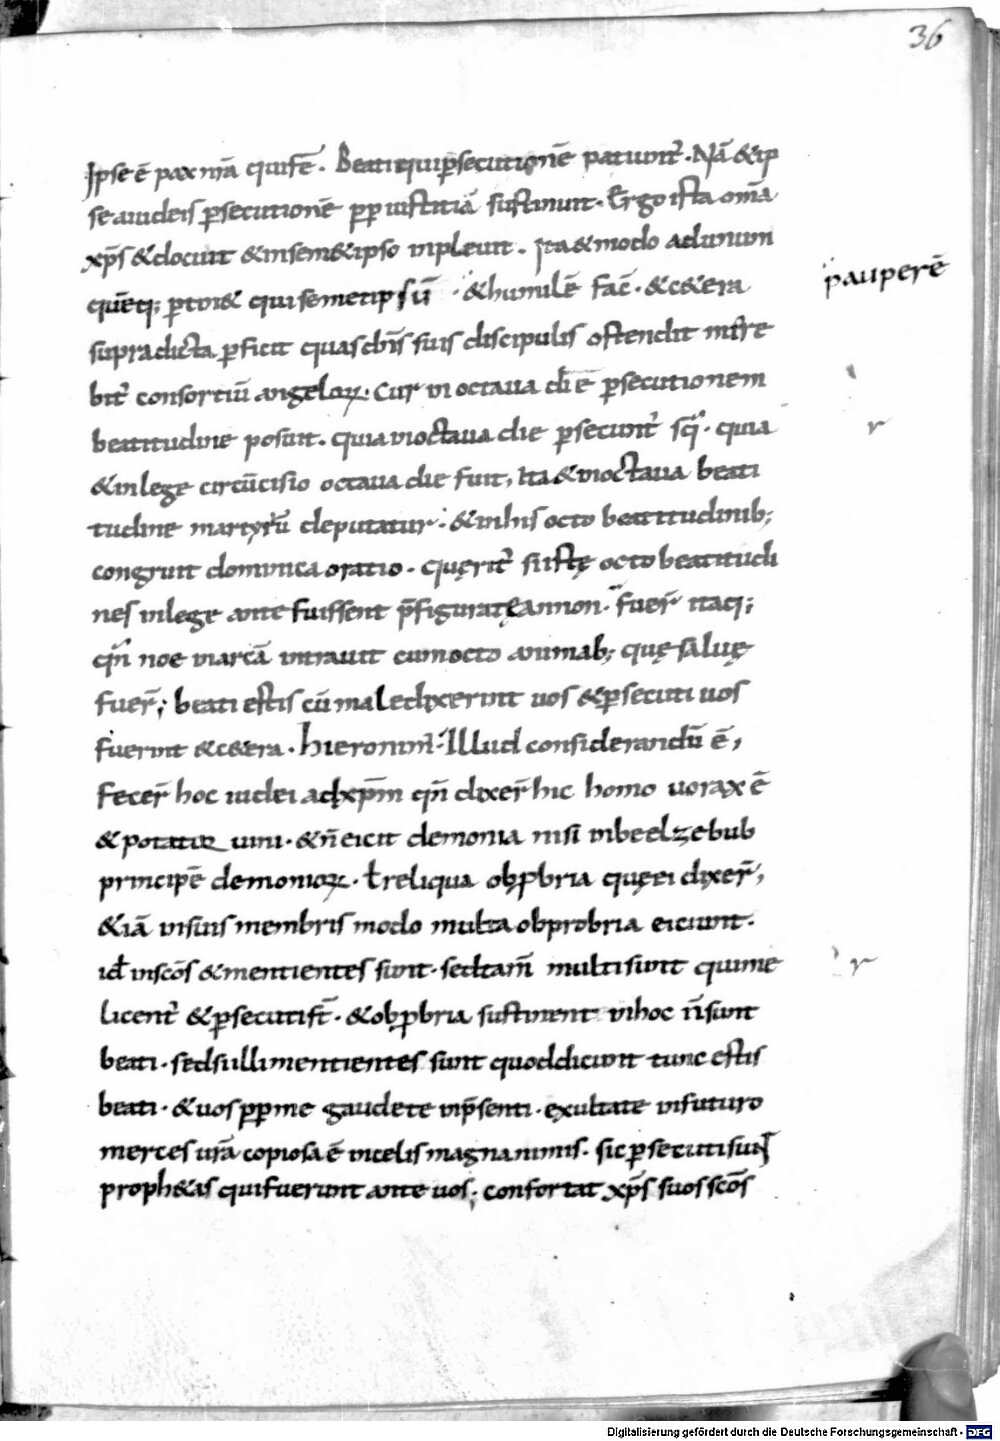 36
Ipse ē pax nr̄a qui fec̄. Beati qui ꝑsecutionē patiunt̄. Nā & ip
se a iudeis ꝑsecutionē ꝓp iustitiā sustinuit. Ergo ista om̄a
xp̄s & docuit & in sem&ipso inpleuit. Ita & modo ad unum
quēq; ꝑtin& qui semetipsū & humilē fac̄. & c&era
pauperē
supradicta ꝑficit quas dn̄s suis discipulis ostendit merere
bit̄ consortiū angeloꝝ. Cur in octaua die ꝑsecutionem
beatitudine posuit. quia in octaua die ꝑsecunt̄ sq̄. quia
r
& in lege circūcisio octaua die fuit, Ita & in octaua beati
tudine martyrū deputatur. & in his octo beatitudinib;
congruit dominica oratio. Quęrit̄ si istę octo beatitudi
nes in lege ante fuissent p̄figuratę an non. fuer̄ itaq;
qn̄ noe in arcā intrauit cum octo animab; quę saluę
fuer̄; beati estis cū maledixerint uos & ꝑsecuti uos
fuerint & c&era. hieronim̄. Illud considerandū ē,
fecer̄ hoc iudei ad xp̄m qn̄ dixer̄ hic homo uorax ē
& potator uini. & n̄ eicit demonia nisi in beelzebub
principē demonioꝝ. ł reliqua obꝓbria quę ei dixer̄,
& iā in suis membris modo multa obprobria eiciunt.
id in scōs & mentientes sunt. sed tam̄ multi sunt qui me
r
licent̄ & ꝑsecuti st̄. & obꝓbria sustinent in hoc n̄ sunt
beati. sed si illi mentientes sunt quod dicunt tunc estis
beati. & uos ꝓp me gaudete in p̄senti. exultate in futuro
merces ur̄a copiosa ē in celis magna nimis. sic ꝑsecuti sunt
proph&as qui fuerunt ante uos. confortat xp̄s suos scōs
Digitalisierung gefördert durch die Deutsche Forschungsgemeinschaft - DFG